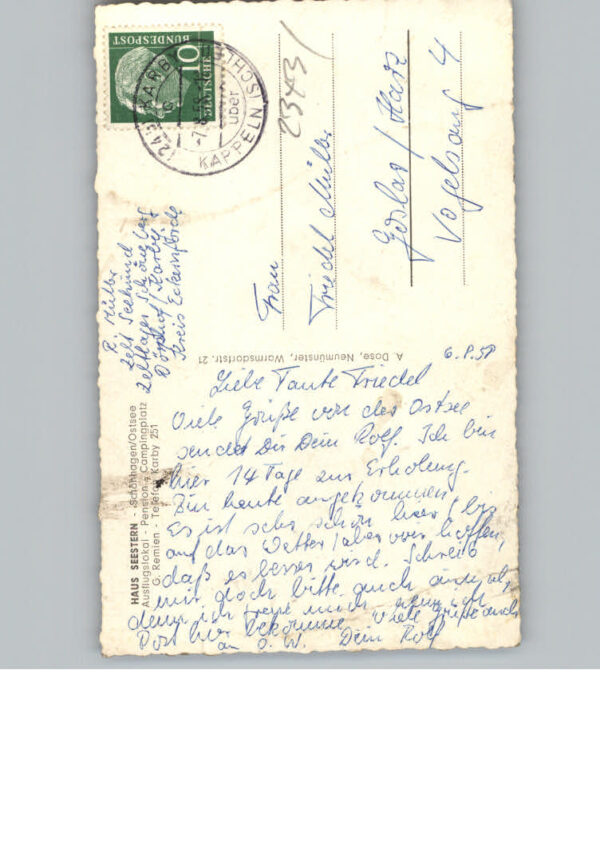 HAUS SEESTERN - Schönhagen/Ostsee
Ausflugslokal - Pension - Campingplatz
G. Remien - Telefon Karby 251
A. Dose, Neumünster, Warmsdorfstr. 21
DEUTSCHE
BUNDESPOST
10
KARBY
über
KAPPELN (SCHL)
2343/
R. Müller
Zelt Seehund
Zeltlager
Dörphof/Karby
Kreis Eckernförde
Frau
Friedel Müller
Goslar/Harz
Vogelsang 4
6.8.58
Liebe Tante Friedel
Viele Grüße von der Ostsee
sendet Dir Dein Rolf. Ich bin
hier 14 Tage zur Erholung.
Bin heute angekommen,
Es ist sehr schön hier (bis
auf das Wetter) aber wir hoffen,
daß es besser wird. Schreib
mir doch bitte auch
denn ich freue mich wenn ich
Post hier bekomme. Viele Grüße auch
an O. W. Dein Rolf